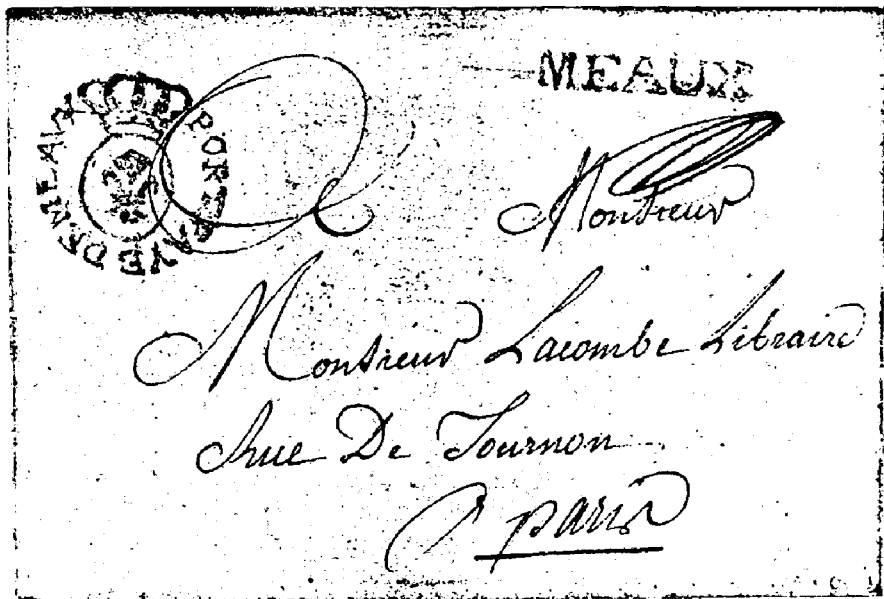 MEAUX
PORT PAYE DE MEAUX
Monsieur
Monsieur Lacombe Libraire
Rue De Tournon
A paris